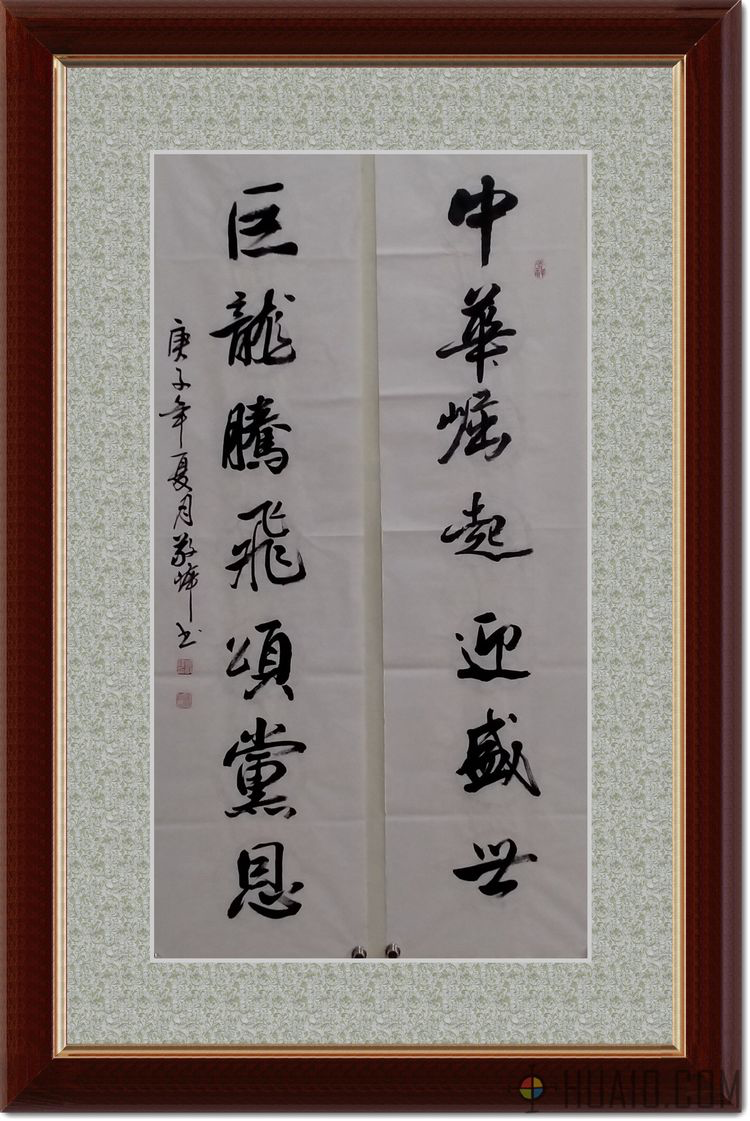 中華崛起迎盛世
巨龍騰飛頌黨恩
庚子年夏月敬㷳书
HUA10.COM